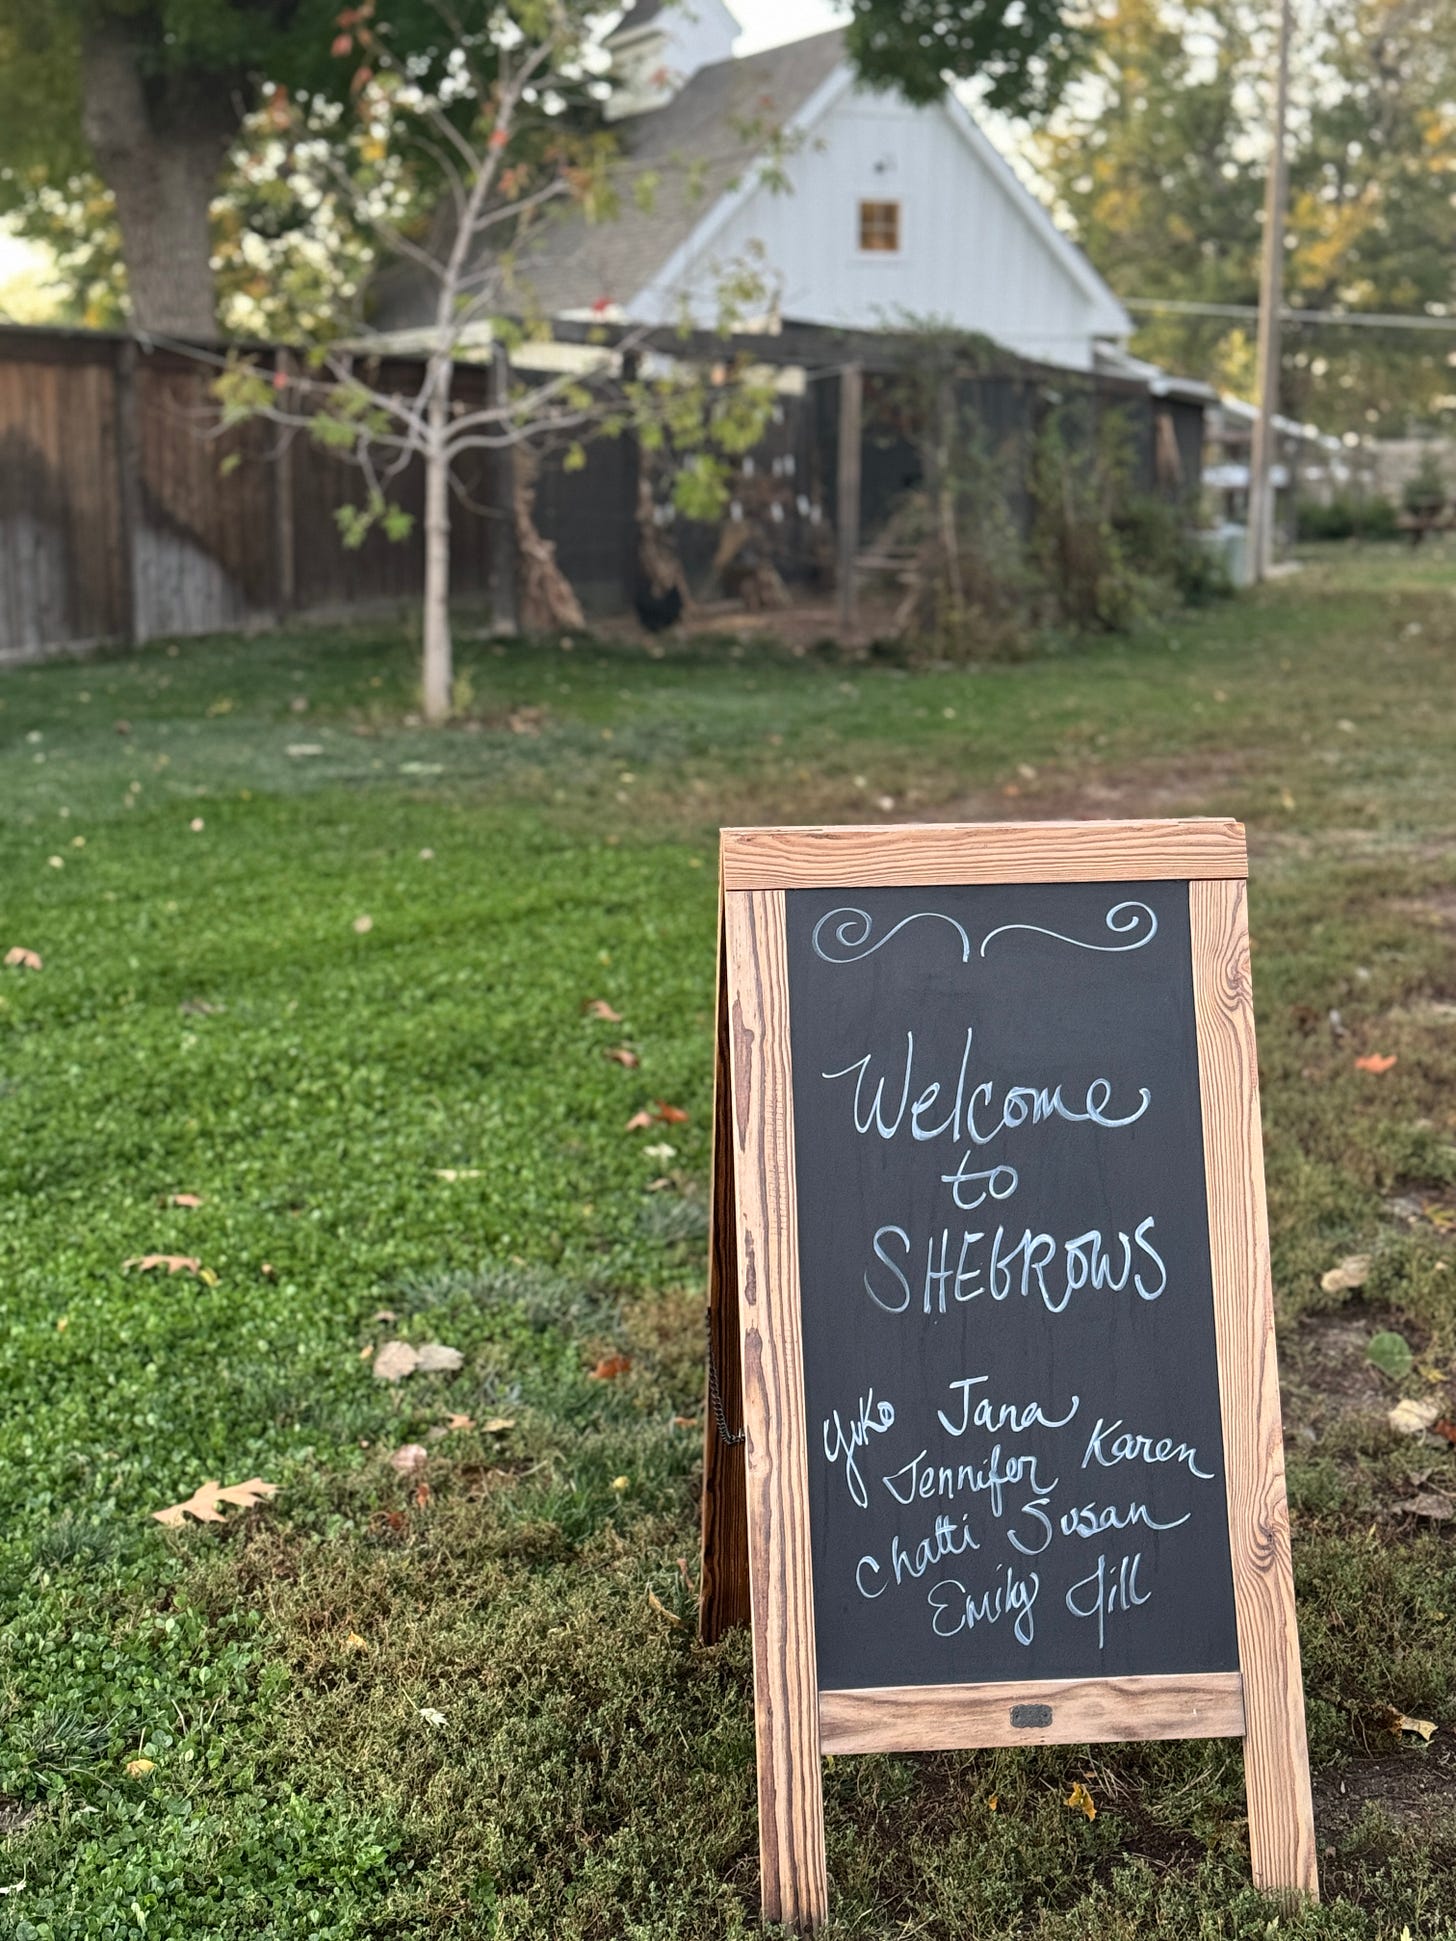 Welcome
to
SHEGROWS
Yuko Jana
Jennifer Karen
Chatti Susan
Emily Jill